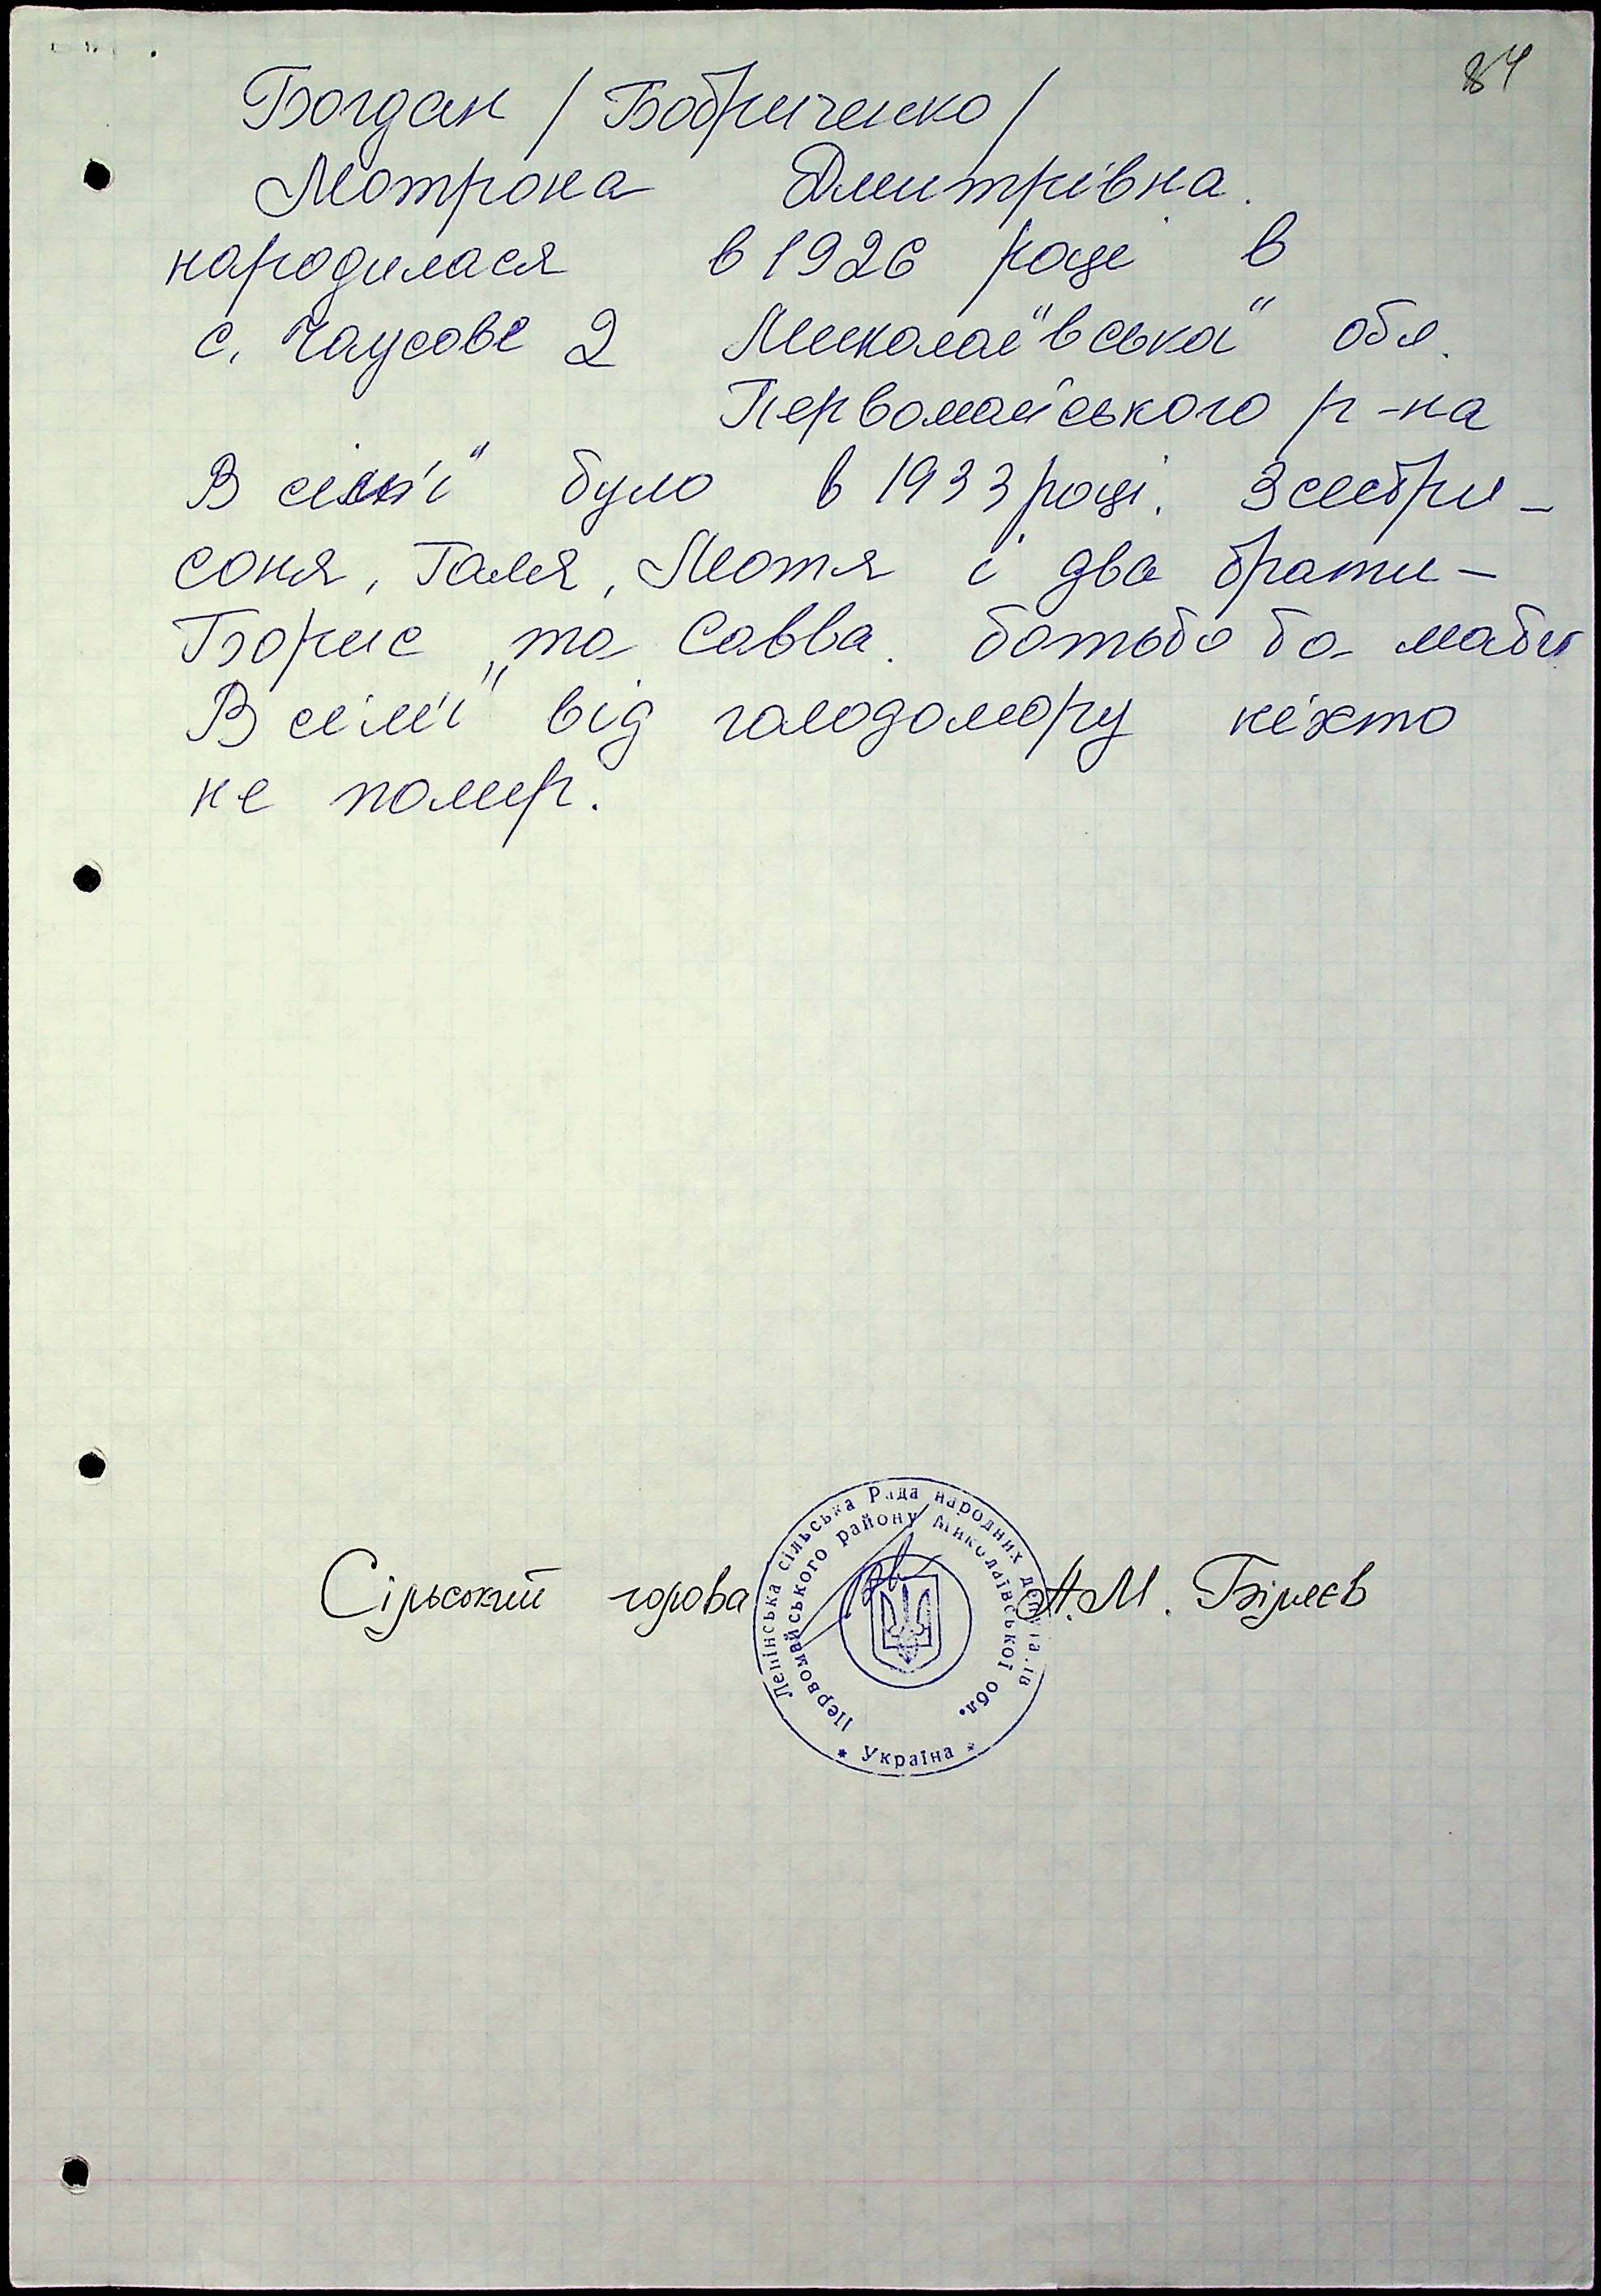 84
Богдан /Бобриченко/
Мотрона Дмитрівна.
народилася в 1926 році в
с. Чаусове 2 Миколаївської обл.
Первомайського р-на
В сім'ї було в 1933 році. 3 сестри -
соня, Галя, Мотя і два брати -
Борис та Савва.
В сім'ї від голодомору ніхто
не помер.
Сільський голова А.М. Біляєв
Ленінська сільська Рада народних депутатів
Первомайського району Миколаївської обл.
* Україна *